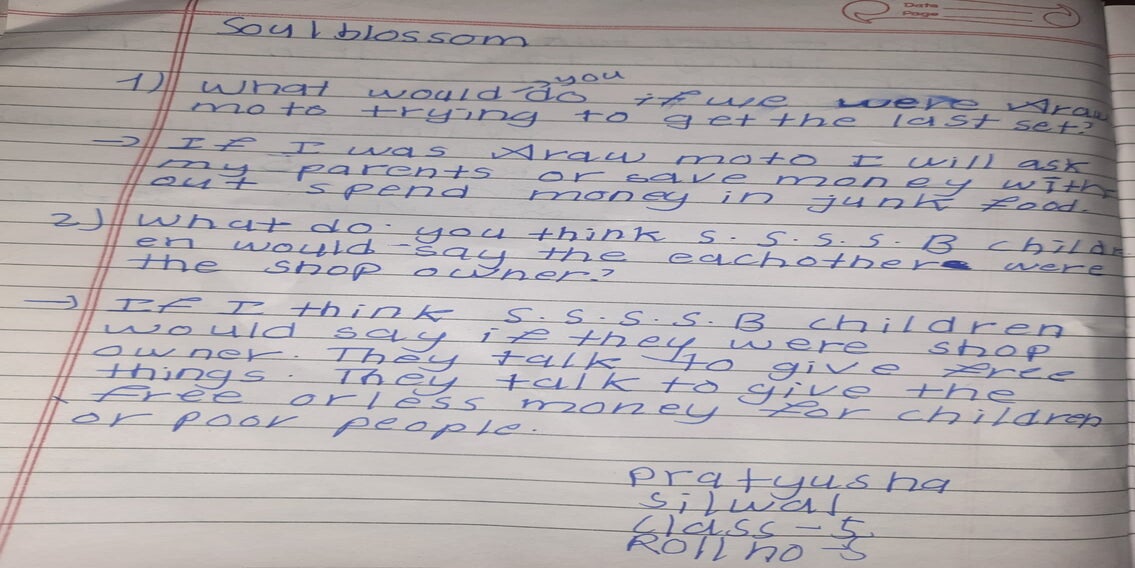 Date
Page
Soulblossom
1) What would do you if we were Araw
moto trying to get the last set?
→ If I was Araw moto I will ask
my parents or save money with-
out spend money in junk food.
2) What do you think S.S.S.S.B childr
en would say the eachother were
the shop owner?
→ If I think S.S.S.S.B children
would say if they were shop
owner. They talk to give free
things. They talk to give the
free or less money for children
or poor people.
Pratyusha
Silwal
Class - 5
Roll no - 5